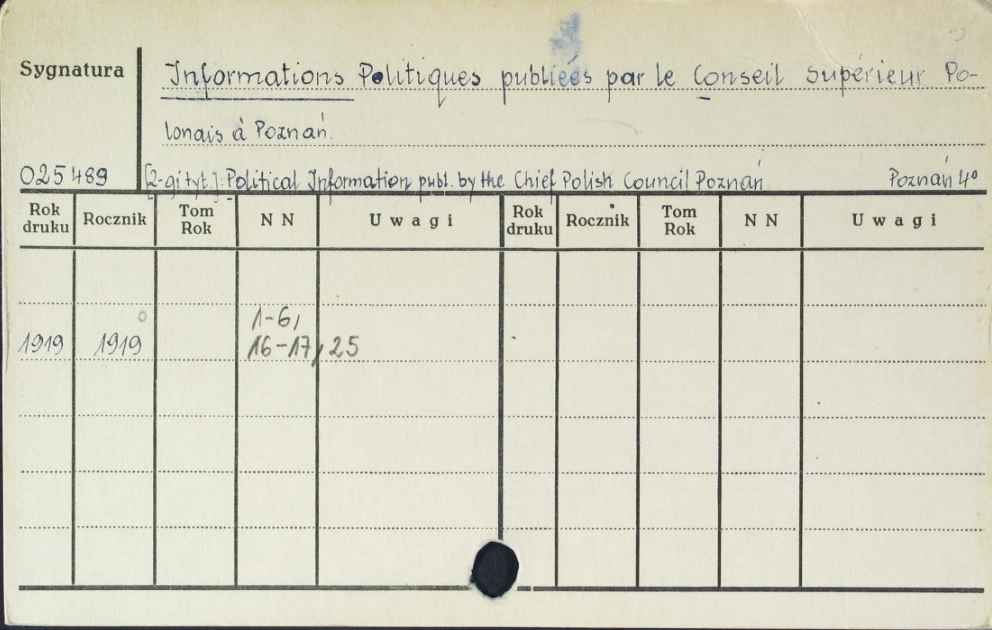 Sygnatura
Informations Politiques publiées par le Conseil Supérieur Po-
lonais à Poznań.
025489 [2-gi tyt.]: Political Information publ. by the Chief Polish Council Poznań Poznań 4°
Rok druku Rocznik Tom Rok NN Uwagi Rok druku Rocznik Tom Rok NN Uwagi
1-6,
1919 1919 16-17, 25